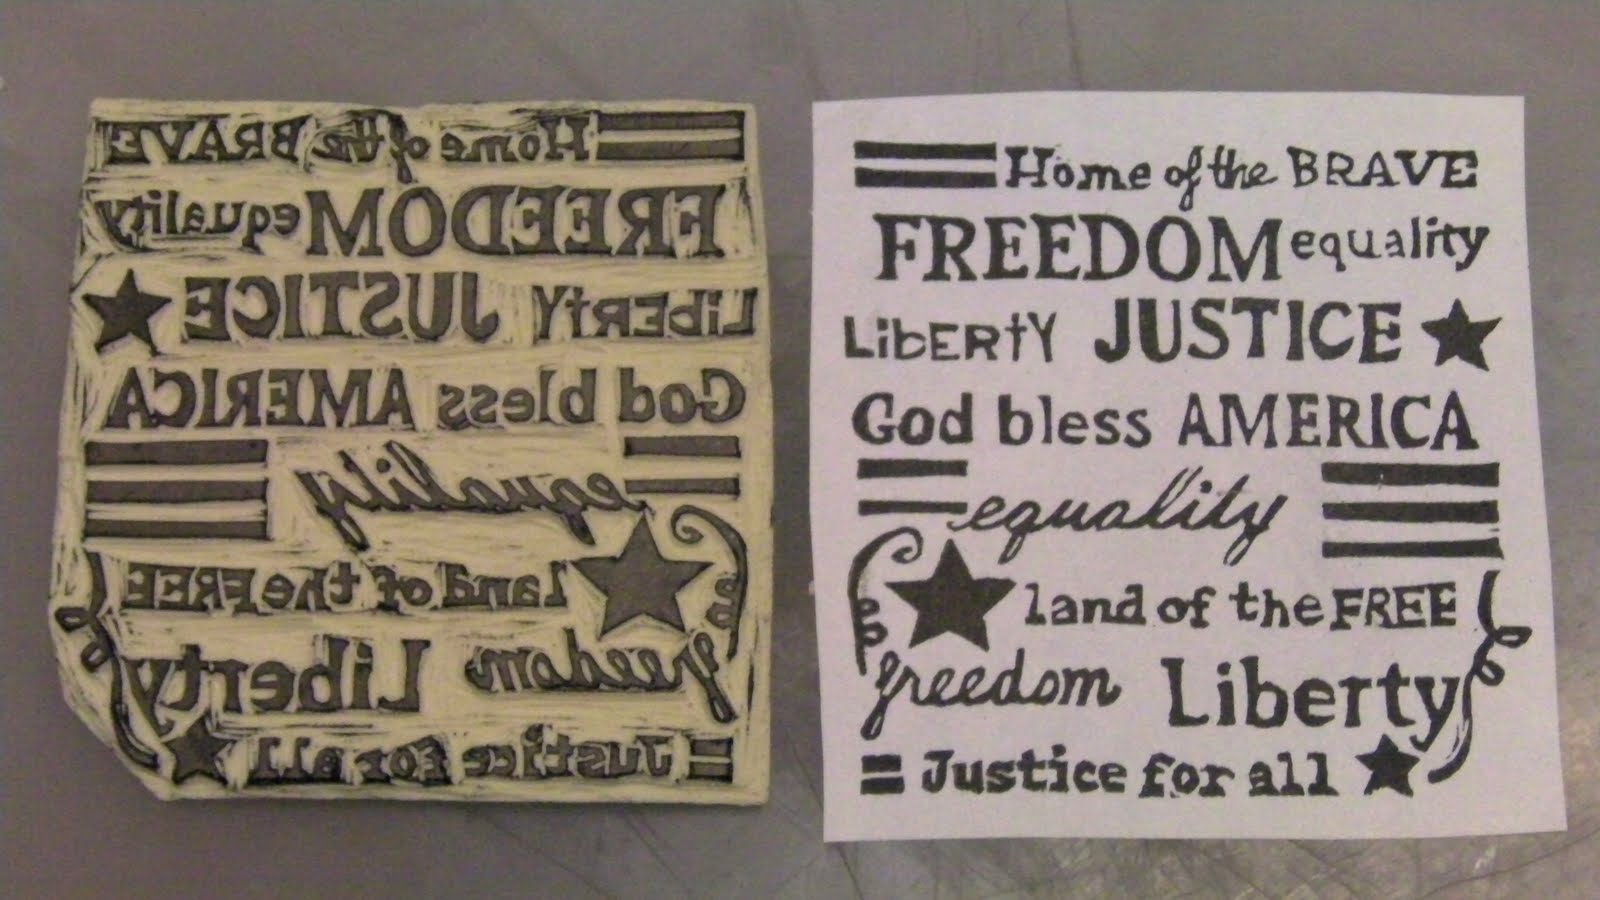 Home of the BRAVE
FREEDOM equality
LibERtY JUSTICE
God bless AMERICA
equality
land of the FREE
freedom Liberty
Justice for all
Home of the BRAVE
FREEDOM equality
LibERtY JUSTICE
God bless AMERICA
equality
land of the FREE
freedom Liberty
Justice for all